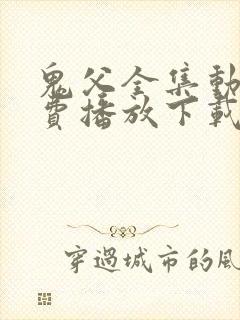 鬼父全集動
費播放下載
穿過城市的風